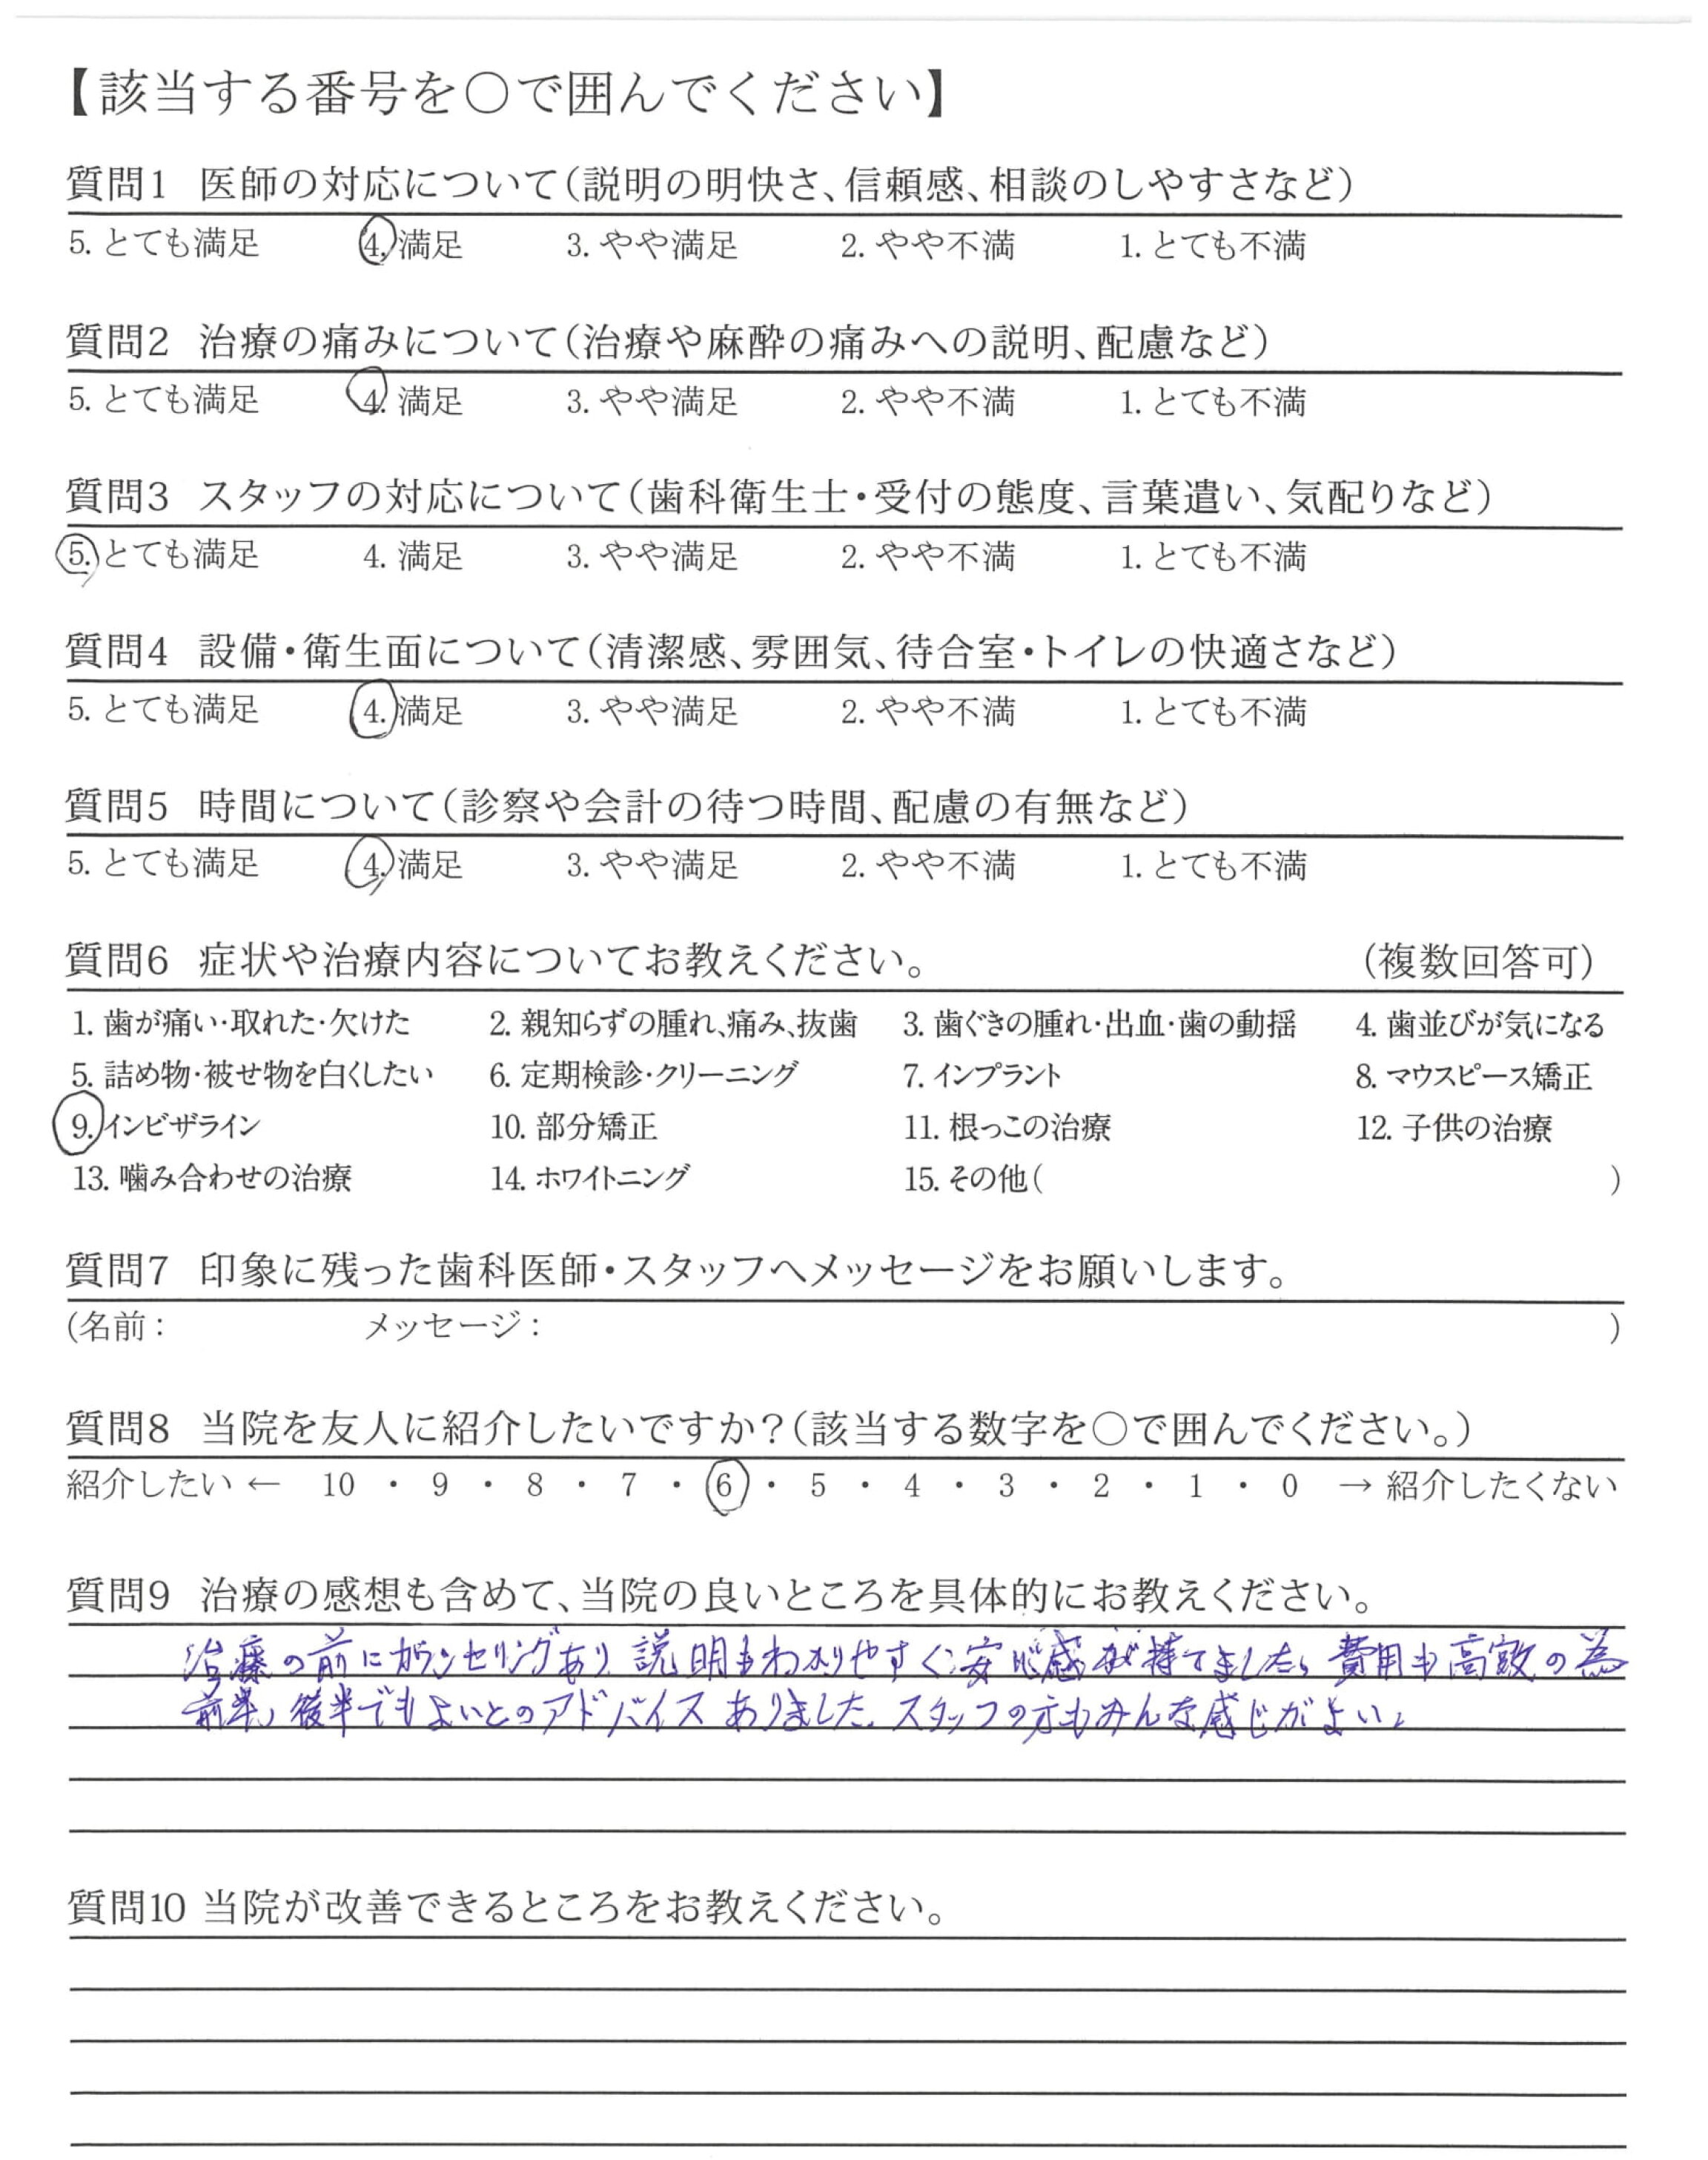 【該当する番号を〇で囲んでください】
質問1 医師の対応について（説明の明快さ、信頼感、相談のしやすさなど）
5. とても満足 4. 満足 3. やや満足 2. やや不満 1. とても不満
質問2 治療の痛みについて（治療や麻酔の痛みへの説明、配慮など）
5. とても満足 4. 満足 3. やや満足 2. やや不満 1. とても不満
質問3 スタッフの対応について（歯科衛生士・受付の態度、言葉遣い、気配りなど）
5. とても満足 4. 満足 3. やや満足 2. やや不満 1. とても不満
質問4 設備・衛生面について（清潔感、雰囲気、待合室・トイレの快適さなど）
5. とても満足 4. 満足 3. やや満足 2. やや不満 1. とても不満
質問5 時間について（診察や会計の待つ時間、配慮の有無など）
5. とても満足 4. 満足 3. やや満足 2. やや不満 1. とても不満
質問6 症状や治療内容についてお教えください。 （複数回答可）
1. 歯が痛い・取れた・欠けた 2. 親知らずの腫れ、痛み、抜歯 3. 歯ぐきの腫れ・出血・歯の動揺 4. 歯並びが気になる
5. 詰め物・被せ物を白くしたい 6. 定期検診・クリーニング 7. インプラント 8. マウスピース矯正
9. インビザライン 10. 部分矯正 11. 根っこの治療 12. 子供の治療
13. 噛み合わせの治療 14. ホワイトニング 15. その他（ ）
質問7 印象に残った歯科医師・スタッフへメッセージをお願いします。
(名前： メッセージ： )
質問8 当院を友人に紹介したいですか？（該当する数字を〇で囲んでください。）
紹介したい ← 10 ・ 9 ・ 8 ・ 7 ・ 6 ・ 5 ・ 4 ・ 3 ・ 2 ・ 1 ・ 0 → 紹介したくない
質問9 治療の感想も含めて、当院の良いところを具体的にお教えください。
治療の前にカウンセリングあり 説明もわかりやすく安心感が持てました。費用も高額の為
前半、後半でもよいとのアドバイスありました。スタッフの方もみんな感じがよい。
質問10 当院が改善できるところをお教えください。